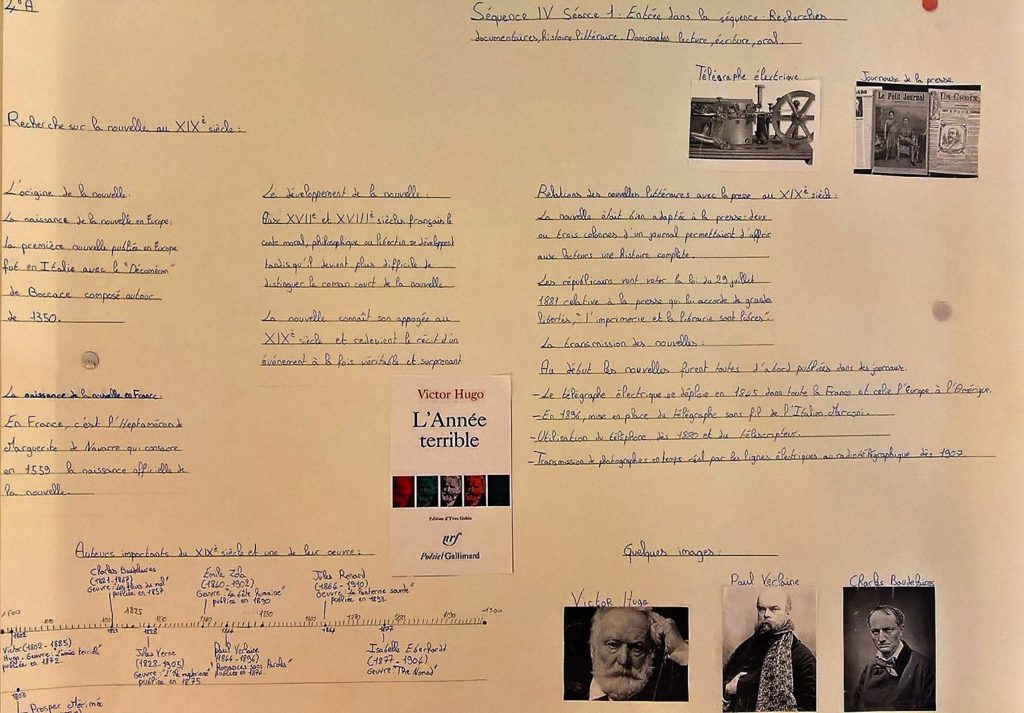 4°A
Séquence IV Séance 1. Entrée dans la séquence. Recherches
documentaires, histoire littéraire. Dominantes lecture, écriture, oral.
Télégraphe électrique
Journaux de la presse
Le Petit Journal
La Croix
Recherche sur la nouvelle au XIXè siècle:
L'origine de la nouvelle:
La naissance de la nouvelle en Europe:
la première nouvelle publiée en Europe
fut en Italie avec le "Décaméron"
de Boccace composé autour
de 1350.
La naissance de la nouvelle en France.
En France, c'est l'Heptaméron de
Marguerite de Navarre qui consacre
en 1559 la naissance officielle de
la nouvelle.
Le développement de la nouvelle:
Aux XVIIè et XVIIIè siècles français le
conte moral, philosophique ou libertin se développent
tandis qu'il devient plus difficile de
distinguer le roman court de la nouvelle
La nouvelle connaît son appogée au
XIXè siècle et redevient le récit d'un
événement à la fois véritable et surprenant
Relations des nouvelles littéraires avec la presse au XIXè siècle:
La nouvelle était bien adaptée à la presse: deux
ou trois colonnes d'un journal permettaient d'offrir
aux lecteurs une histoire complète.
Les républicains vont voter la loi du 29 juillet
1881 relative à la presse qui lui accorde de grande
libertés, "l'imprimerie et la librairie sont libres".
La transmission des nouvelles:
Au début les nouvelles furent toutes d'abord publiées dans des journaux.
-Le télégraphe électrique se déploie en 1845 dans toute la France et relie l'Europe à l'Amérique.
-En 1896, mise en place du télégraphe sans fil de l'Italien Marconi.
-Utilisation du téléphone dès 1880 et du téléscripteur.
-Transmission de photographies en temps réel par les lignes électriques ou radiotélégraphique dès 1907.
Victor Hugo
L'Année
terrible
Édition d'Yves Gohin
nrf
Poésie/Gallimard
Auteurs importants du XIXè siècle et une de leur oeuvre:
Charles Baudelaires
(1821-1867)
Oeuvre: "Les fleurs du mal"
publiée en 1857.
Émile Zola
(1840-1902)
Oeuvre: "La bête humaine"
publiée en 1890
Jules Renard
(1864-1910)
Oeuvre: "La lanterne sourde"
publiée en 1893.
1800
1825
1900
1802
1821
1828
1844
1877
Victor (1802-1885)
Hugo. Oeuvre: "L'année terrible"
publiée en 1872.
Jules Verne
(1828-1905)
Oeuvre:
publiée en 1875
Paul Verlaine
(1844-1896)
"Romances sans Paroles"
publiée en 1874.
Isabelle Eberhardt
(1877-1904)
Oeuvre "The Nomad"
1803
Prosper Mérimée
Quelques images:
Victor Hugo
Paul Verlaine
Charles Baudelaires